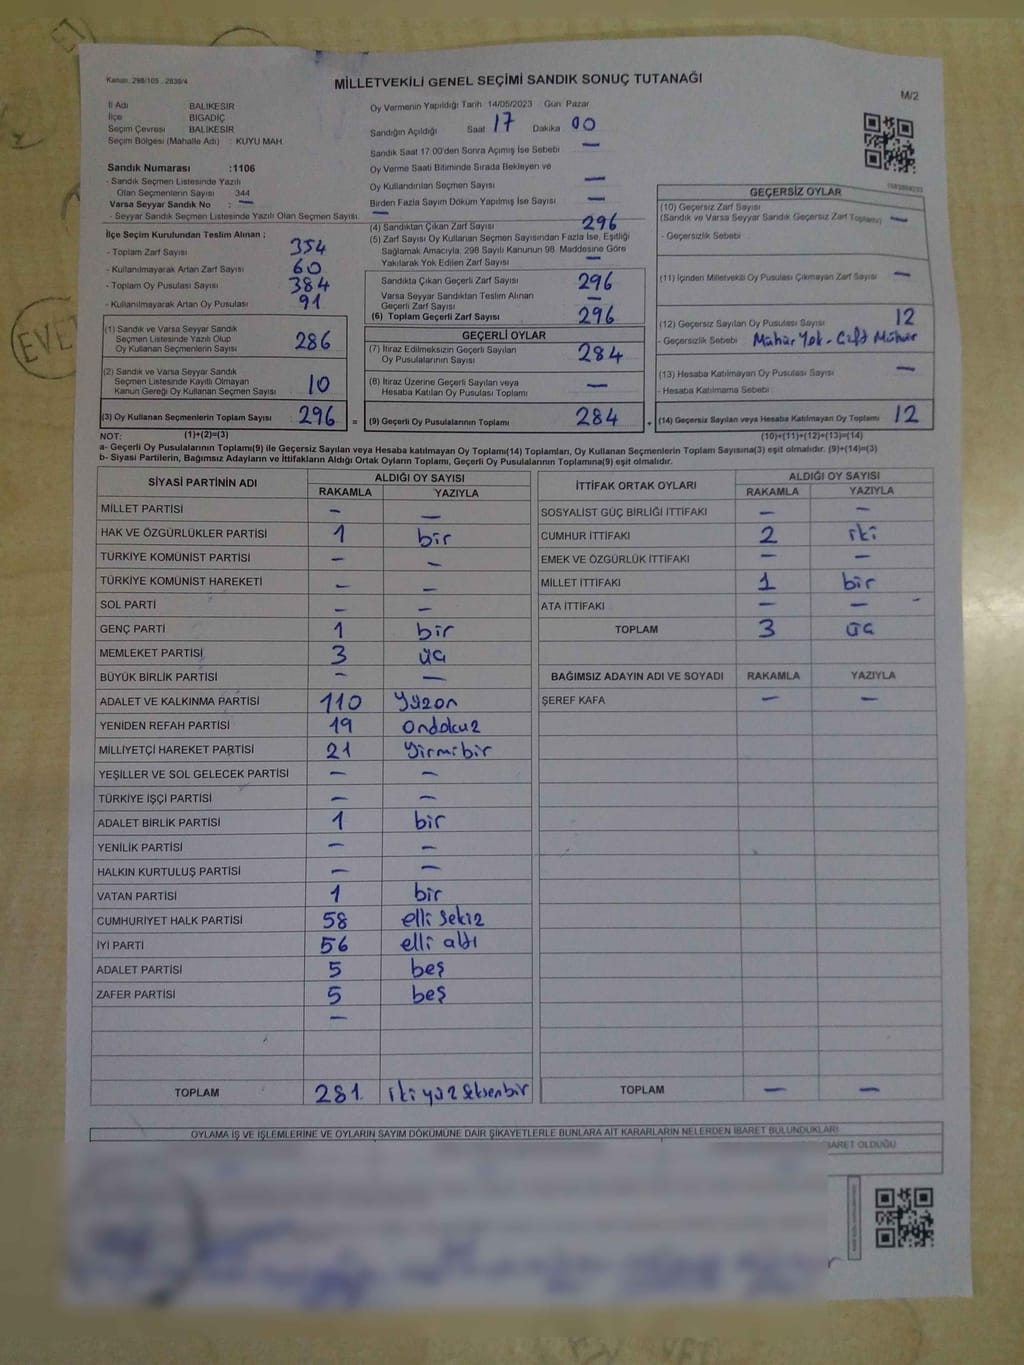 Kanun: 298/105 , 2839/4
MİLLETVEKİLİ GENEL SEÇİMİ SANDIK SONUÇ TUTANAĞI
M/2
İl Adı BALIKESİR
İlçe BİGADİÇ
Seçim Çevresi BALIKESİR
Seçim Bölgesi (Mahalle Adı) : KUYU MAH
Sandık Numarası :1106
- Sandık Seçmen Listesinde Yazılı
Olan Seçmenlerin Sayısı 344
Varsa Seyyar Sandık No : —
- Seyyar Sandık Seçmen Listesinde Yazılı Olan Seçmen Sayısı. —
Oy Vermenin Yapıldığı Tarih 14/05/2023 Gün Pazar
Sandığın Açıldığı Saat 17 Dakika 00
Sandık Saat 17:00'den Sonra Açımış İse Sebebi —
Oy Verme Saati Bitiminde Sırada Bekleyen ve
Oy Kullandırılan Seçmen Sayısı —
Birden Fazla Sayım Döküm Yapılmış İse Sayısı —
İlçe Seçim Kurulundan Teslim Alınan ;
- Toplam Zarf Sayısı 354
- Kullanılmayarak Artan Zarf Sayısı 60
- Toplam Oy Pusulası Sayısı 384
- Kullanılmayarak Artan Oy Pusulası 91
(1) Sandık ve Varsa Seyyar Sandık
Seçmen Listesinde Yazılı Olup
Oy Kullanan Seçmenlerin Sayısı 286
(2) Sandık ve Varsa Seyyar Sandık
Seçmen Listesinde Kayıtlı Olmayan
Kanun Gereği Oy Kullanan Seçmen Sayısı 10
(3) Oy Kullanan Seçmenlerin Toplam Sayısı 296 =
(4) Sandıktan Çıkan Zarf Sayısı 296
(5) Zarf Sayısı Oy Kullanan Seçmen Sayısından Fazla İse, Eşitliği
Sağlamak Amacıyla, 298 Sayılı Kanunun 98. Maddesine Göre
Yakılarak Yok Edilen Zarf Sayısı —
Sandıkta Çıkan Geçerli Zarf Sayısı 296
Varsa Seyyar Sandıktan Teslim Alınan
Geçerli Zarf Sayısı —
(6) Toplam Geçerli Zarf Sayısı 296
GEÇERLİ OYLAR
(7) İtiraz Edilmeksizin Geçerli Sayılan
Oy Pusulalarının Sayısı 284
(8) İtiraz Üzerine Geçerli Sayılan veya
Hesaba Katılan Oy Pusulası Toplamı —
(9) Geçerli Oy Pusulalarının Toplamı 284 +
GEÇERSİZ OYLAR
(10) Geçersiz Zarf Sayısı
(Sandık ve Varsa Seyyar Sandık Geçersiz Zarf Toplamı) —
- Geçersizlik Sebebi
(11) İçinden Milletvekili Oy Pusulası Çıkmayan Zarf Sayısı —
(12) Geçersiz Sayılan Oy Pusulası Sayısı 12
- Geçersizlik Sebebi Mühür Yok - Çift Mühür
(13) Hesaba Katılmayan Oy Pusulası Sayısı —
- Hesaba Katılmama Sebebi
(14) Geçersiz Sayılan veya Hesaba Katılmayan Oy Toplamı 12
NOT: (1)+(2)=(3) (10)+(11)+(12)+(13)=(14)
a- Geçerli Oy Pusulalarının Toplamı(9) ile Geçersiz Sayılan veya Hesaba katılmayan Oy Toplamı(14) Toplamları, Oy Kullanan Seçmenlerin Toplam Sayısına(3) eşit olmalıdır. (9)+(14)=(3)
b- Siyasi Partilerin, Bağımsız Adayların ve İttifakların Aldığı Ortak Oyların Toplamı, Geçerli Oy Pusulalarının Toplamına(9) eşit olmalıdır.
SİYASİ PARTİNİN ADI ALDIĞI OY SAYISI
RAKAMLA YAZIYLA
MİLLET PARTİSİ — —
HAK VE ÖZGÜRLÜKLER PARTİSİ 1 bir
TÜRKİYE KOMÜNİST PARTİSİ — —
TÜRKİYE KOMÜNİST HAREKETİ — —
SOL PARTİ — —
GENÇ PARTİ 1 bir
MEMLEKET PARTİSİ 3 üç
BÜYÜK BİRLİK PARTİSİ — —
ADALET VE KALKINMA PARTİSİ 110 Yüzon
YENİDEN REFAH PARTİSİ 19 Ondokuz
MİLLİYETÇİ HAREKET PARTİSİ 21 Yirmibir
YEŞİLLER VE SOL GELECEK PARTİSİ — —
TÜRKİYE İŞÇİ PARTİSİ — —
ADALET BİRLİK PARTİSİ 1 bir
YENİLİK PARTİSİ — —
HALKIN KURTULUŞ PARTİSİ — —
VATAN PARTİSİ 1 bir
CUMHURİYET HALK PARTİSİ 58 elli sekiz
İYİ PARTİ 56 elli altı
ADALET PARTİSİ 5 beş
ZAFER PARTİSİ 5 beş
—
TOPLAM 281 iki yüz seksenbir
İTTİFAK ORTAK OYLARI ALDIĞI OY SAYISI
RAKAMLA YAZIYLA
SOSYALİST GÜÇ BİRLİĞİ İTTİFAKI — —
CUMHUR İTTİFAKI 2 iki
EMEK VE ÖZGÜRLÜK İTTİFAKI — —
MİLLET İTTİFAKI 1 bir
ATA İTTİFAKI — —
TOPLAM 3 üç
BAĞIMSIZ ADAYIN ADI VE SOYADI RAKAMLA YAZIYLA
ŞEREF KAFA — —
TOPLAM — —
OYLAMA İŞ VE İŞLEMLERİNE VE OYLARIN SAYIM DÖKÜMÜNE DAİR ŞİKAYETLERLE BUNLARA AİT KARARLARIN NELERDEN İBARET BULUNDUKLARI
BARET OLDUĞU
EVET